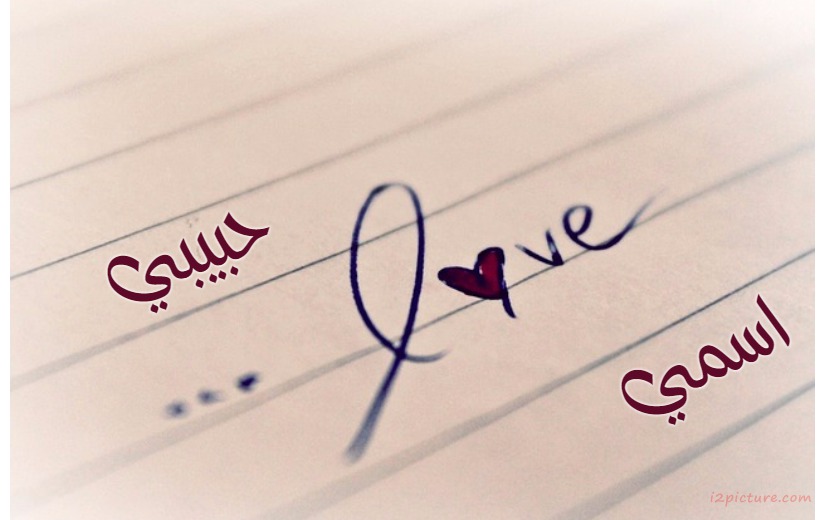 حبيبي
love
...
اسمي
i2picture.com